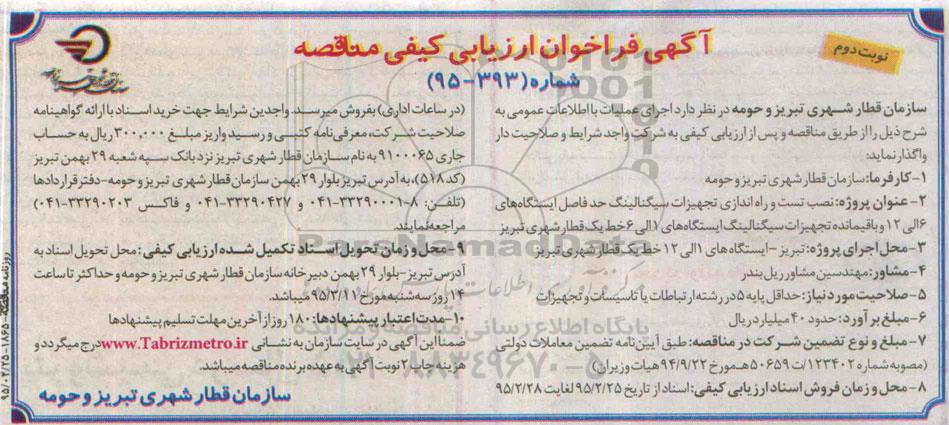 نوبت دوم
آگهی فراخوان ارزیابی کیفی مناقصه
شماره (۳۹۳-۹۵)
سازمان قطار شهری تبریز و حومه در نظر دارد اجرای عملیات با اطلاعات عمومی به
شرح ذیل را از طریق مناقصه و پس از ارزیابی کیفی به شرکت واجد شرایط و صلاحیت دار
واگذار نماید:
۱-کارفرما: سازمان قطار شهری تبریز و حومه
۲- عنوان پروژه: نصب تست و راه اندازی تجهیزات سیگنالینگ حد فاصل ایستگاه‌های
۶ الی ۱۲ و باقیمانده تجهیزات سیگنالینگ ایستگاه‌های ۱ الی ۶ خط یک قطار شهری تبریز
۳-محل اجرای پروژه: تبریز - ایستگاه‌های ۱ الی ۱۲ خط یک قطار شهری تبریز
۴-مشاور: مهندسین مشاور ریل بندر
۵-صلاحیت مورد نیاز: حداقل پایه ۵ در رشته ارتباطات یا تاسیسات و تجهیزات
۶-مبلغ برآورد: حدود ۴۰ میلیارد ریال
۷-مبلغ و نوع تضمین شرکت در مناقصه: طبق آیین نامه تضمین معاملات دولتی
(مصوبه شماره ۱۲۳۴۰۲/ت ۵۰۶۵۹ هـ مورخ ۹۴/۹/۲۲ هیات وزیران)
۸-محل و زمان فروش اسناد ارزیابی کیفی: اسناد از تاریخ ۹۵/۲/۲۵ لغایت ۹۵/۲/۲۸
(در ساعات اداری) بفروش میرسد. واجدین شرایط جهت خرید اسناد با ارائه گواهینامه
صلاحیت شرکت، معرفی نامه کتبی و رسید واریز مبلغ ۳۰۰,۰۰۰ ریال به حساب
جاری ۹۱۰۰۰۶۵ به نام سازمان قطار شهری تبریز نزد بانک سپه شعبه ۲۹ بهمن تبریز
(کد ۵۱۸)، به آدرس تبریز بلوار ۲۹ بهمن سازمان قطار شهری تبریز و حومه-دفتر قراردادها
(تلفن: ۸-۳۳۲۹۰۰۰۱-۰۴۱ و ۳۳۲۹۰۴۲۷-۰۴۱ و فاکس ۳۳۲۹۰۲۰۳-۰۴۱)
مراجعه نمایند.
۹-محل و زمان تحویل اسناد تکمیل شده ارزیابی کیفی: محل تحویل اسناد به
آدرس تبریز-بلوار ۲۹ بهمن دبیرخانه سازمان قطار شهری تبریز و حومه و حداکثر تا ساعت
۱۴ روز سه شنبه مورخ ۹۵/۳/۱۱ میباشد.
۱۰-مدت اعتبار پیشنهادها: ۱۸۰ روز از آخرین مهلت تسلیم پیشنهادها
ضمنا این آگهی در سایت سازمان به نشانی www.Tabrizmetro.ir درج میگردد و
هزینه چاپ ۲ نوبت آگهی به عهده برنده مناقصه میباشد.
سازمان قطار شهری تبریز و حومه
روزنامه مناقصه-۱۸۶۵-۹۵/۰۲/۲۵
ParsNamadData
پایگاه اطلاع رسانی مناقصه و مزایده
۰۲۱-۸۸۳۴۹۶۷۰-۵